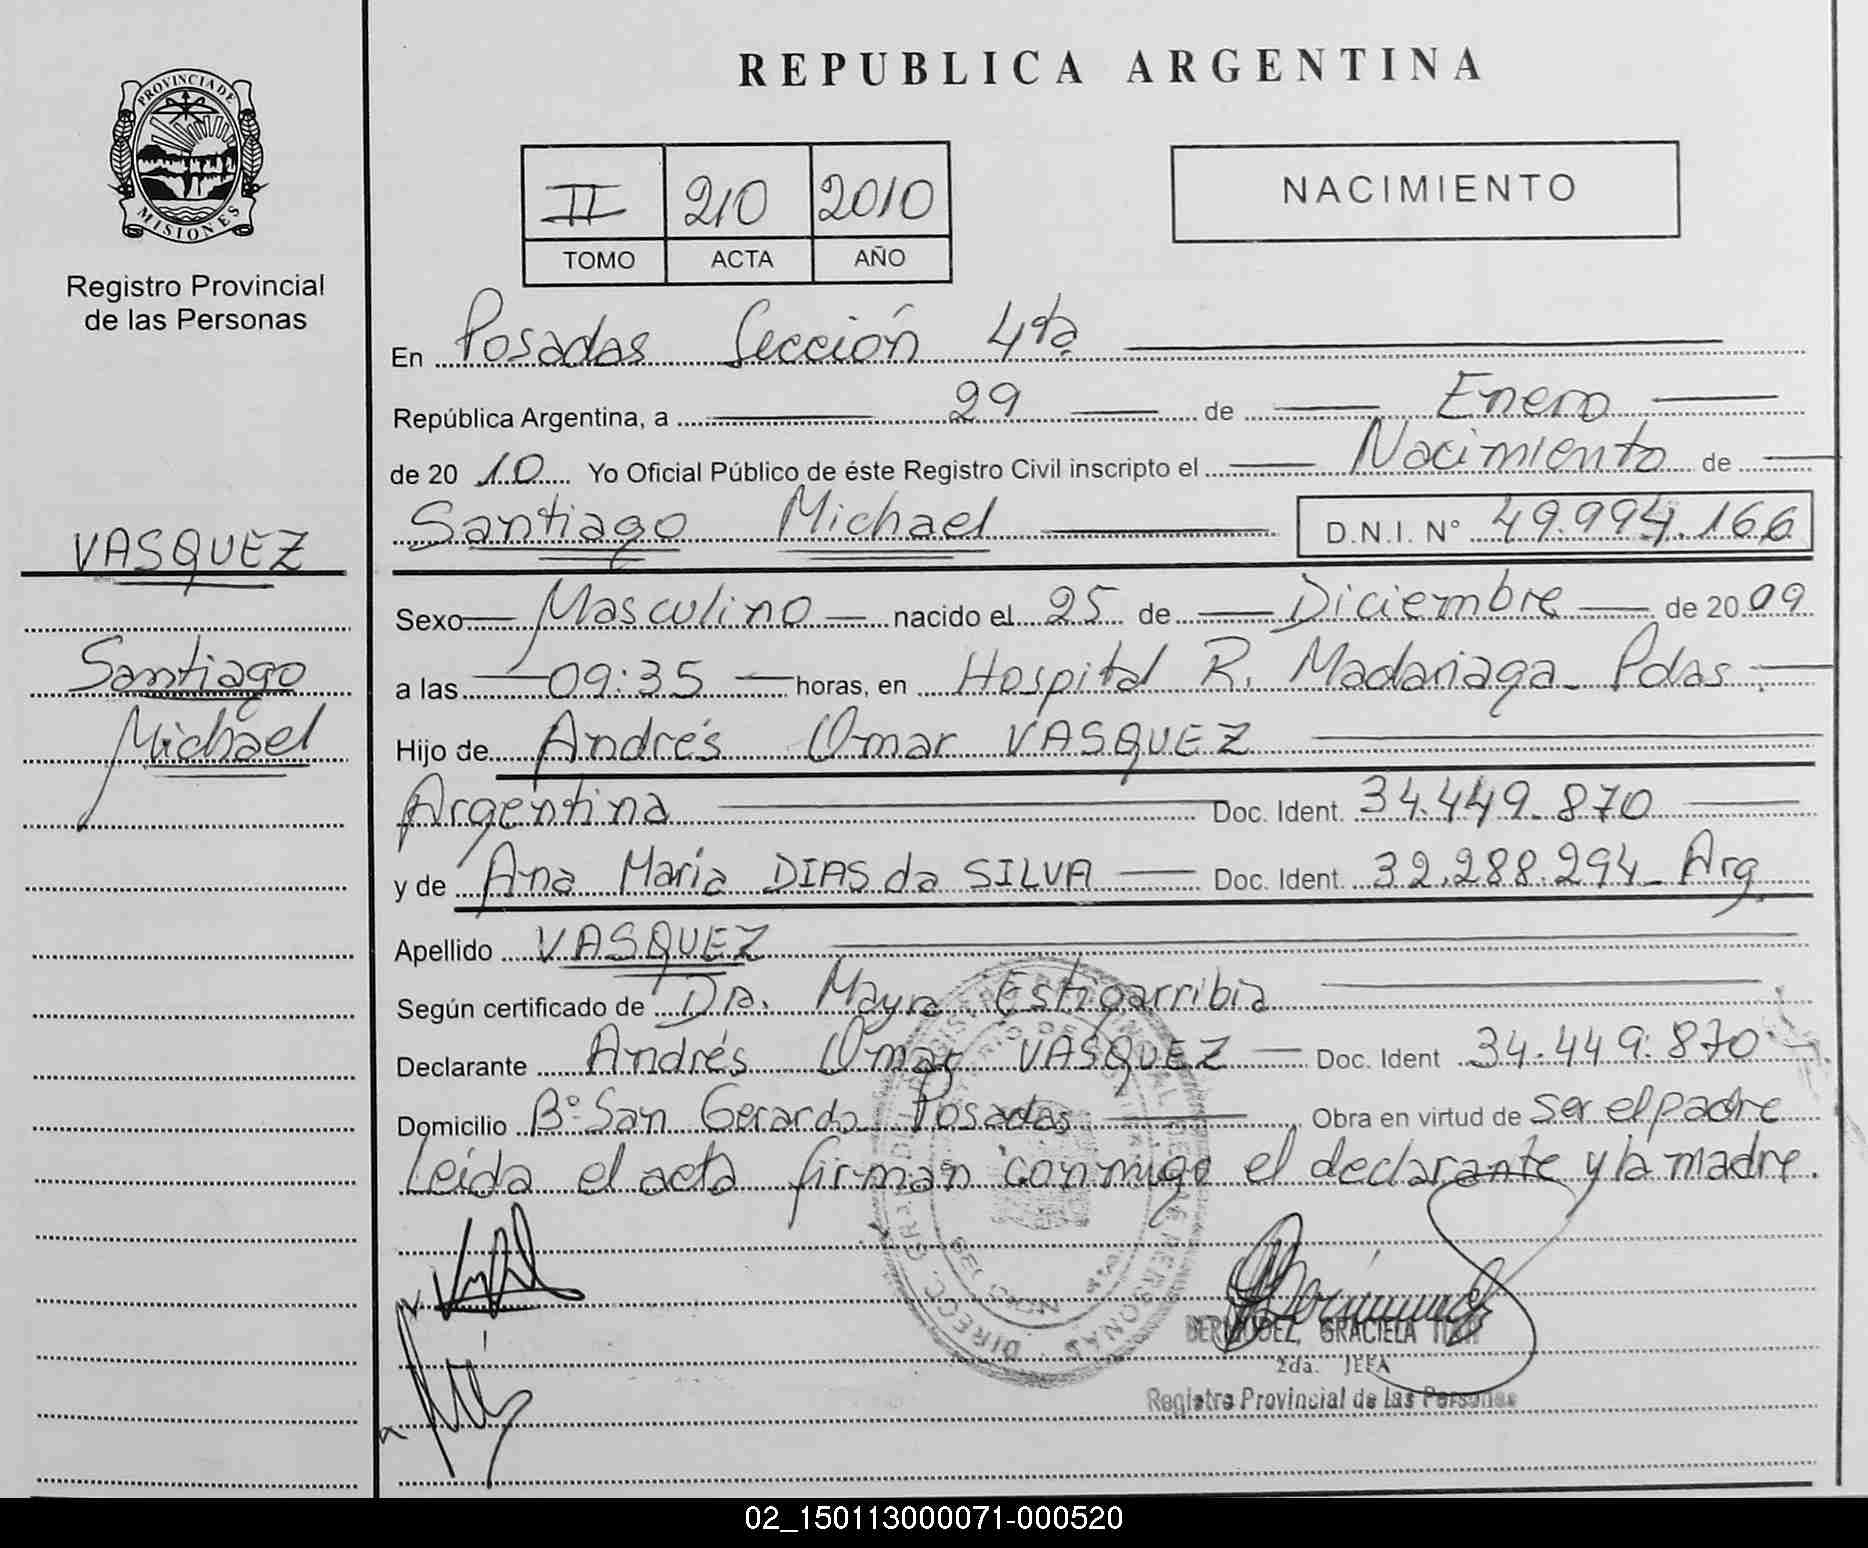 REPUBLICA ARGENTINA
PROVINCIA DE
MISIONES
Registro Provincial
de las Personas
II 210 2010
TOMO ACTA AÑO
NACIMIENTO
VASQUEZ
Santiago
Michael
En Posadas Sección 4ta
República Argentina, a 29 de Enero
de 20 10 Yo Oficial Público de éste Registro Civil inscripto el Nacimiento de
Santiago Michael D.N.I. N° 49.994.166
Sexo Masculino nacido el 25 de Diciembre de 20 09
a las 09:35 horas, en Hospital R. Madariaga - Pdas.
Hijo de Andrés Omar VASQUEZ
Argentina Doc. Ident. 34.449.870
y de Ana Maria DIAS da SILVA Doc. Ident. 32.288.294 - Arg.
Apellido VASQUEZ
Según certificado de Dra. Mayra Estigarribia
Declarante Andrés Omar VASQUEZ Doc. Ident 34.449.870
Domicilio B° San Gerardo Posadas Obra en virtud de ser el padre
Leida el acta firman conmigo el declarante y la madre.
BERMUDEZ, GRACIELA
2da. JEFA
Registro Provincial de las Personas
02_150113000071-000520